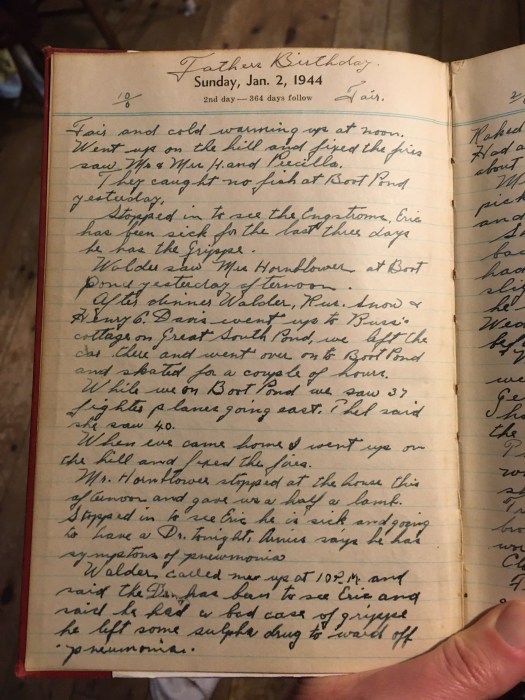 Fathers Birthday.
Sunday, Jan. 2, 1944
2nd day — 364 days follow
Fair.
10/0
Fair and cold warming up at noon.
Went up on the hill and fixed the fires
saw Mr & Mrs H. and Priscilla.
They caught no fish at Boot Pond
yesterday.
Stopped in to see the Engstroms, Eric
has been sick for the last three days
he has the Grippe.
Walder saw Mrs Hornblower at Boot
Pond yesterday afternoon.
After dinner Walder, Rus. Snow &
Henry C. Davis went up to Russ.
cottage on Great South Pond, we left the
car there and went over on to Boot Pond
and skated for a couple of hours.
While we on Boot Pond we saw 37
fighter planes going east. Phel said
she saw 40.
When we came home I went up on
the hill and fixed the fires.
Mr. Hornblower stopped at the house this
afternoon and gave us a half a lamb.
Stopped in to see Eric he is sick and going
to have a Dr. tonight. says he has
symptons of pneumonia
Walder called me up at 10 P.M. and
said the Dr. has been to see Eric and
said he had a bad case of grippe
he left some sulpha drug to ward off
pneumonia.
2/
Raked
Had a
about
pick
and
bac
had
slip
he
Wed
bef
we
Ge
I ha
the